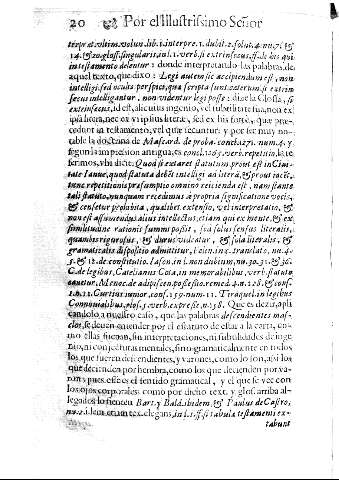 20 Por el Illustrissimo Señor
terpret. vltim. volun. lib. 1. interpre. 1. dubit. 2. solut. 4. nu. 71. &
14. 20. gloss. singularis, in l. 1. verb. si extrinsecus, ff. de his qui
in testamento delentur: donde interpretando las palabras de
aquel texto, que dixo: Legi autem sic accipiendum est, non
intelligi, sed oculis perspici, quæ scripta sunt, cæterum si extrin
secus intelligantur, non videntur legi posse: dize la Glossa, si
extrinsecus, id est, alterius ingenio, vel subtilitate sua, non ex
ipsa litera, nec ex vi ipsius literæ, sed ex his fortè, quæ præ-
cedunt in testamento, vel quæ secuntur: y por ser muy no-
table la doctrina de Mascard. de proba. conclu. 71. num. 4. y
segun la impression antigua, es concl. 1285. verb. repetitio, la re
ferimos, vbi dicit: Quod si extaret statutum prout est in Ciui-
tate Ianuæ, quod statuta debēt intelligi ad literā, & prout iacēt,
tunc repetitionis præsumptio omnino reiicienda est, nam stante
tali statuto, nunquam recedimus à propria significatione vocis,
& censetur prohibita, quælibet extensio, vel interpretatio, &
non est assumendus alius intellectus, etiam qui ex mente, & ex
similitudine rationis summi possit, sed solus sensus literalis,
quamuis rigurosus, & durus videatur, & sola literalis, &
gramaticalis dispositio admittitur,
5. & 12. de constitutio. Iason. in l. nu. 30. 31. & 36.
C. de legibus, Catelianus Cota, in memorabilibus, verb. statuto
cauetur, Menoc. de adipiscen. possessio. remed. 4. n. 128. & cons.
Curtius iunior, cons. 159. num. 11. Tiraquel. in legibus
Connubialibus, glos. 5. verb. expresse. n. 158. Que es dezir, apli
candolo a nuestro caso, que las palabras descendientes mas-
culos, se deuen entender por el estatuto de estar a la carta, co-
mo ellas suenan, sin interpretaciones, ni subtilidades de inge
nio, ni conjeturas mentales, sino gramaticalmēte en todos
los que fueren descendientes, y varones, como lo son, assi los
que decienden por hembra, como los que decienden por va-
rones pues esse es el sentido gramatical, y el que se vee con
los ojos corporales como por dicho text. y glos. arriba al-
legados lo sienten Bart. y Bald. ibidem. & Paulus de Castro,
nu. 2. idem etiam tex. elegans, in l. 1. ff. si tabulæ testamenti ex-
tabunt